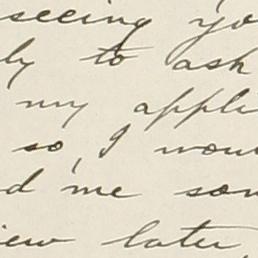 seeing yo
ly to ask
my appli
so, I wou
d me som
iew later,